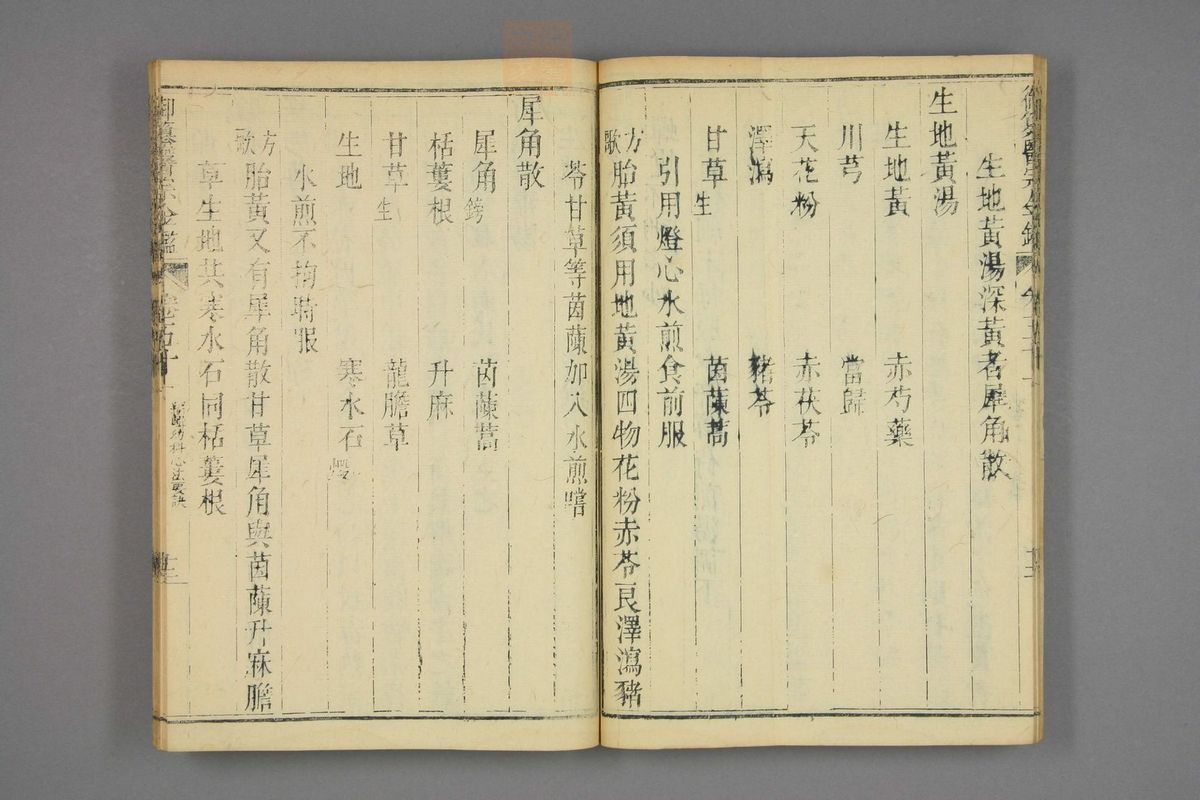 生地黃湯深黃者犀角散
生地黃湯
生地黃 赤芍藥
川芎 當歸
天花粉 赤茯苓
澤瀉 豬苓
甘草生 茵蔯蒿
引用燈心水煎食前服
方歌 胎黃須用地黃湯四物花粉赤苓良澤瀉豬
苓甘草等茵蔯加入水煎嚐
犀角散
犀角鎊 茵蔯蒿
栝蔞根 升麻
甘草生 龍膽草
生地 寒水石煆
水煎不拘時服
方歌 胎黃又有犀角散甘草犀角與茵蔯升麻膽
草生地共寒水石同栝蔞根
御纂醫宗金鑑 幼科心法要訣